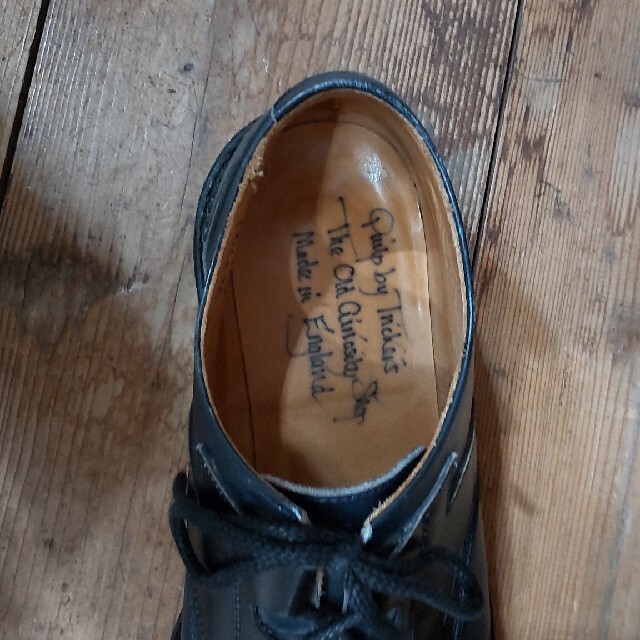 by Tricker's
The Old Curiosity Shop
Made in England